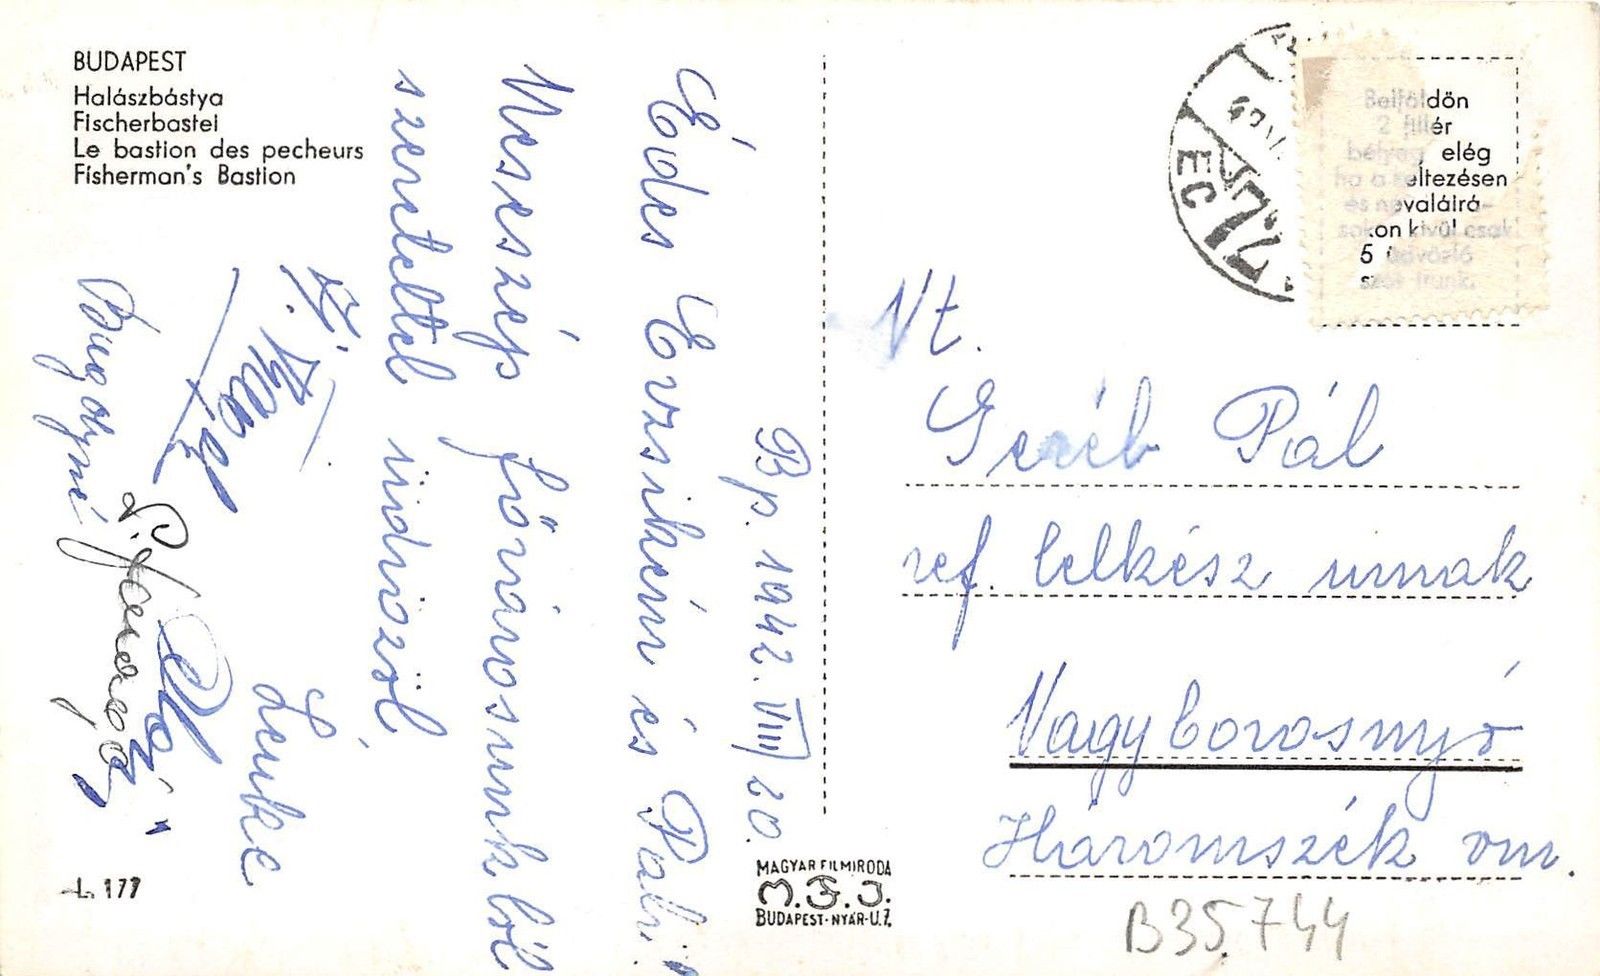 BUDAPEST
Halászbástya
Fischerbastei
Le bastion des pecheurs
Fisherman's Bastion
Bp. 1942. VIII/20.
Édes Evzsikém és Pali!
Meseszép fővárosunkból
szeretettel üdvözöl
Lenke
L. 177
MAGYAR FILMIRODA
M.F.I.
BUDAPEST-NYÁR-U.7.
EC
72
Belföldön
2 fillér
bélyeg elég
ha a keltezésen
és névaláírá-
sokon kívül csak
5 üdvözlő
szót írunk.
Nt.
Geréb Pál
ref. lelkész urnak
Nagyborosnyó
Háromszék vm.
B35.744